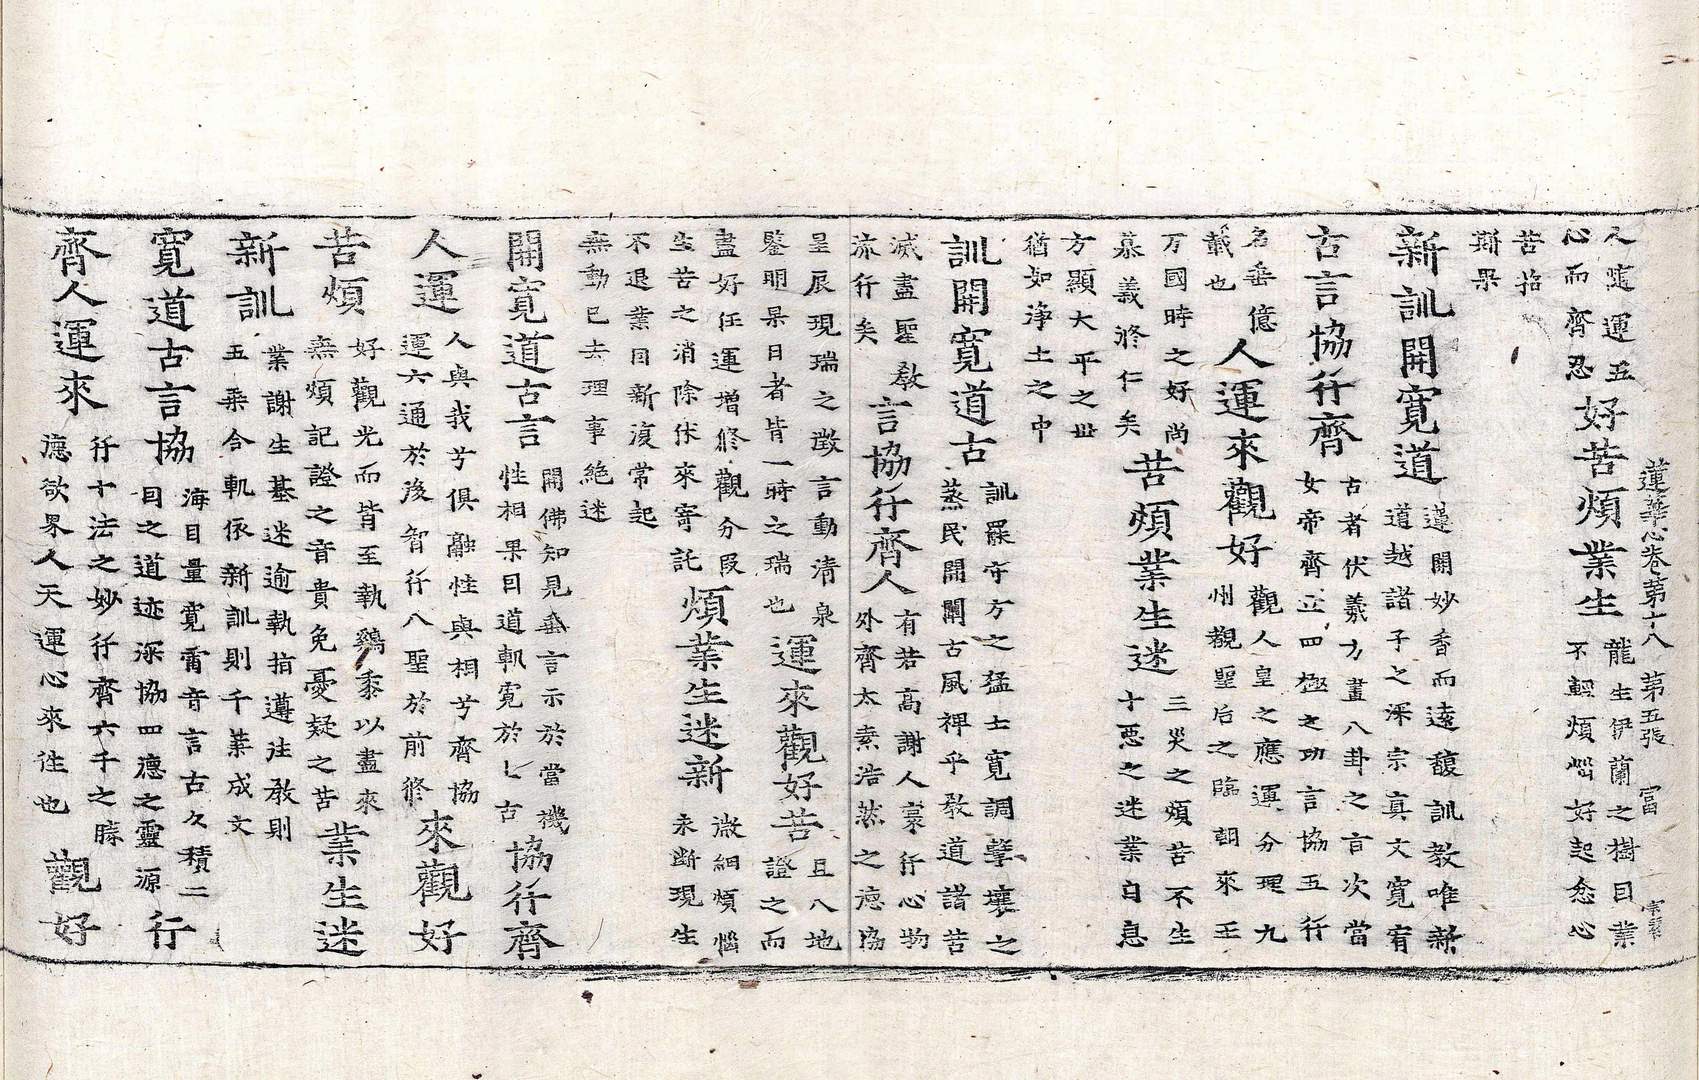 蓮華心卷第十八 第五張 富
人壞運五
心而齊忍
好苦煩業生
龍生伊蘭之樹因業
不輕煩惱好起忿心
苦招
斯果
新訓開寬道
蓮開妙香而遠馥訓教唯新
道越諸子之深宗真文寬宥
古言協行齊
古者伏羲方畫八卦之言次當
女帝齊立四極之功言協五行
名垂億
載也
人運來觀好
觀人皇之應運分理九
州觀聖后之臨朝來王
万國時之好尚
慕義終仁矣
苦煩業生迷
三災之煩苦不生
十惡之迷業自息
方顯大平之世
猶如淨土之中
訓開寬道古
訓羅守方之猛士寬調擊壤之
蒸民開闡古風裨乎教道諸苦
滅盡聖教
流行矣
言協行齊人
有若高謝人寰行心物
外齊太素浩然之德協
呈辰現瑞之徵言動清泉
鑒明果日者皆一時之瑞也
運來觀好苦
且八地
證之而
盡好任運增修觀分段
生苦之消除休來寄託
煩業生迷新
微細煩惱
永斷現生
不退業因新復常起
無動已去理事絕迷
開寬道古言
開佛知見垂言示於當機
性相果因道軌寬於七古
協行齊
人運
人與我兮俱融性與相兮齊協
運六通於後智行八聖於前修
來觀好
苦煩
好觀光而皆至執鷄黍以盡來
無煩記證之音貴免憂疑之苦
業生迷
新訓
業謝生基迷逾執指遵往教則
五乘合軌依新訓則千葉成文
寬道古言協
海目量寬雷音言古久積二
因之道迹深協四德之靈源
行
齊人運來
行十法之妙行齊六千之勝
德欲界人天運心來往也
觀好